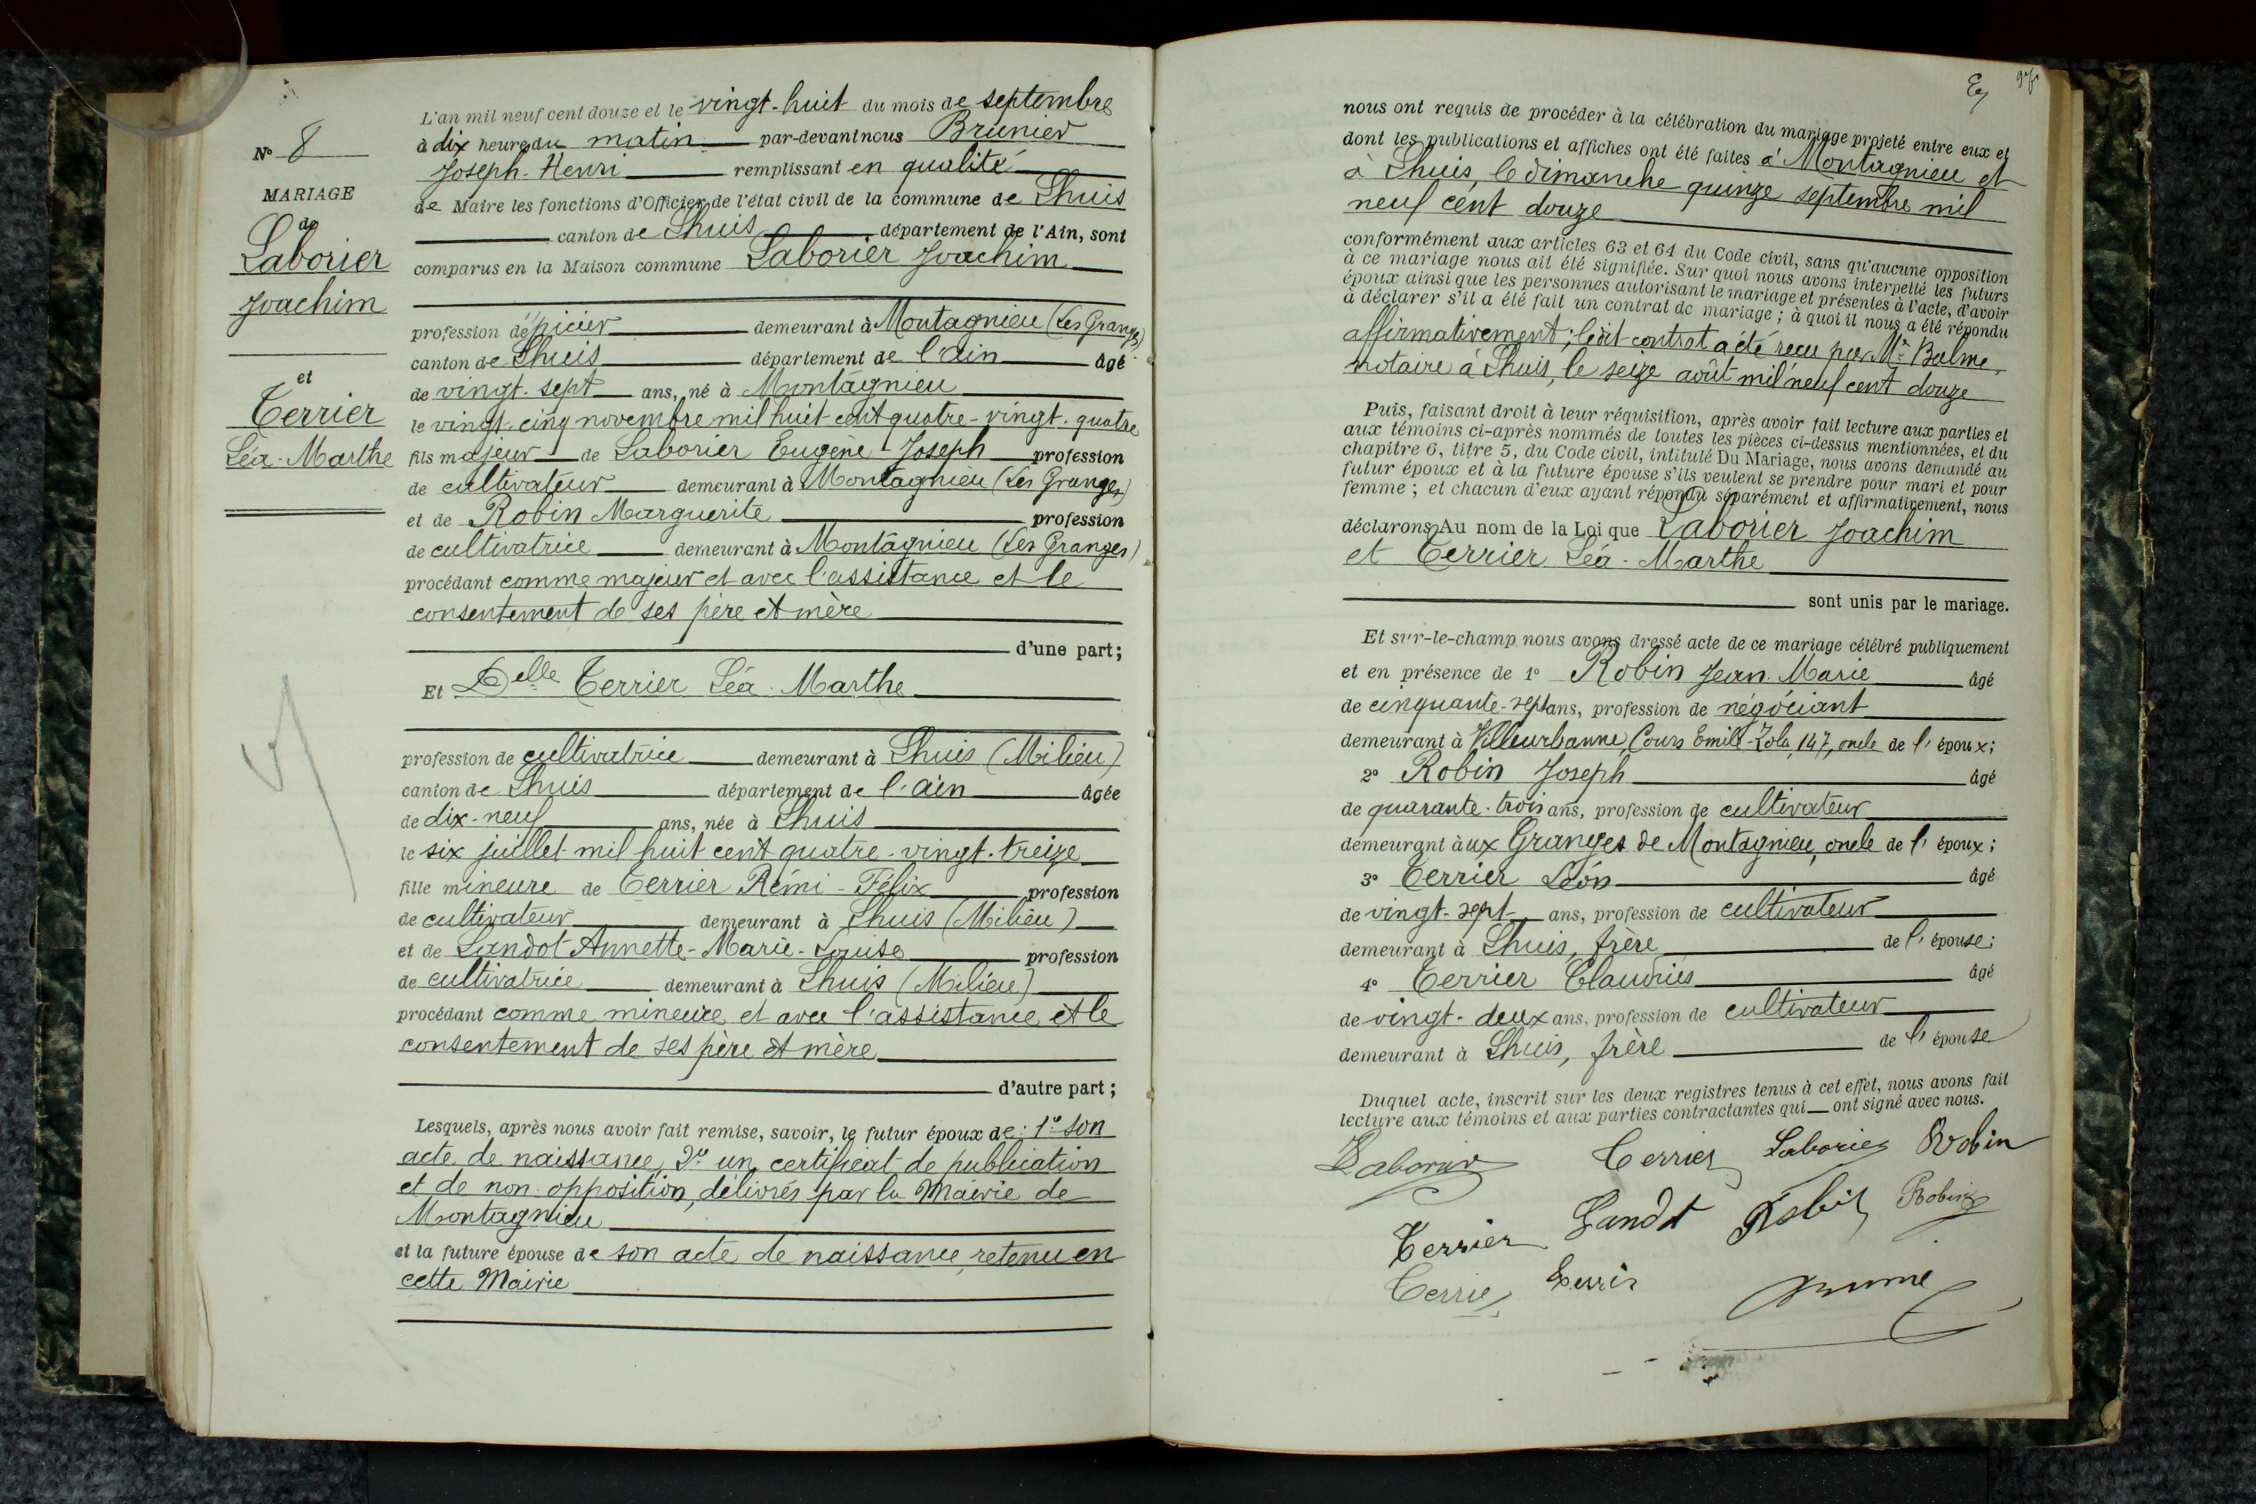 N° 8
MARIAGE
de
Laborier
Joachim
et
Terrier
Léa-Marthe
L'an mil neuf cent douze et le vingt-huit du mois de septembre
à dix heures du matin par-devant nous Brunier
Joseph-Henri remplissant en qualité
de Maire les fonctions d'Officier de l'état civil de la commune de Lhuis
canton de Lhuis département de l'Ain, sont
comparus en la Maison commune Laborier Joachim
profession d'épicier demeurant à Montagnieu (Les Granges)
canton de Lhuis département de l'ain âgé
de vingt-sept ans, né à Montagnieu
le vingt-cinq novembre mil huit cent quatre-vingt-quatre
fils majeur de Laborier Eugène-Joseph profession
de cultivateur demeurant à Montagnieu (Les Granges)
et de Robin Marguerite profession
de cultivatrice demeurant à Montagnieu (Les Granges)
procédant comme majeur et avec l'assistance et le
consentement de ses père et mère
d'une part;
Et Delle Terrier Léa-Marthe
profession de cultivatrice demeurant à Lhuis (Milieu)
canton de Lhuis département de l'ain âgée
de dix-neuf ans, née à Lhuis
le six juillet mil huit cent quatre-vingt-treize
fille mineure de Terrier Rémi-Félix profession
de cultivateur demeurant à Lhuis (Milieu)
et de Landot Annette-Marie-Louise profession
de cultivatrice demeurant à Lhuis (Milieu)
procédant comme mineure et avec l'assistance et le
consentement de ses père et mère
d'autre part;
Lesquels, après nous avoir fait remise, savoir, le futur époux de: 1° son
acte de naissance, 2° un certificat de publication
et de non-opposition, délivrés par la Mairie de
Montagnieu
et la future épouse de son acte de naissance, retenu en
cette Mairie
nous ont requis de procéder à la célébration du mariage projeté entre eux et
dont les publications et affiches ont été faites à Montagnieu et
à Lhuis, le dimanche quinze septembre mil
neuf cent douze
conformément aux articles 63 et 64 du Code civil, sans qu'aucune opposition
à ce mariage nous ait été signifiée. Sur quoi nous avons interpellé les futurs
époux ainsi que les personnes autorisant le mariage et présentes à l'acte, d'avoir
à déclarer s'il a été fait un contrat de mariage; à quoi il nous a été répondu
affirmativement; ledit contrat a été reçu par Me Balme,
notaire à Lhuis, le seize août mil neuf cent douze
Puis, faisant droit à leur réquisition, après avoir fait lecture aux parties et
aux témoins ci-après nommés de toutes les pièces ci-dessus mentionnées, et du
chapitre 6, titre 5, du Code civil, intitulé Du Mariage, nous avons demandé au
futur époux et à la future épouse s'ils veulent se prendre pour mari et pour
femme; et chacun d'eux ayant répondu séparément et affirmativement, nous
déclarons Au nom de la Loi que Laborier Joachim
et Terrier Léa-Marthe
sont unis par le mariage.
Et sur-le-champ nous avons dressé acte de ce mariage célébré publiquement
et en présence de 1° Robin Jean-Marie âgé
de cinquante-sept ans, profession de négociant
demeurant à Villeurbanne, Cours Emile-Zola, 147, oncle de l'époux;
2° Robin Joseph âgé
de quarante-trois ans, profession de cultivateur
demeurant aux Granges de Montagnieu, oncle de l'époux;
3° Terrier Léon âgé
de vingt-sept ans, profession de cultivateur
demeurant à Lhuis, frère de l'épouse;
4° Terrier Claudius âgé
de vingt-deux ans, profession de cultivateur
demeurant à Lhuis, frère de l'épouse
Duquel acte, inscrit sur les deux registres tenus à cet effet, nous avons fait
lecture aux témoins et aux parties contractantes qui ont signé avec nous.
Laborier Terrier Laborier Robin
Terrier Landot Robin Robin
Terrier Terrier